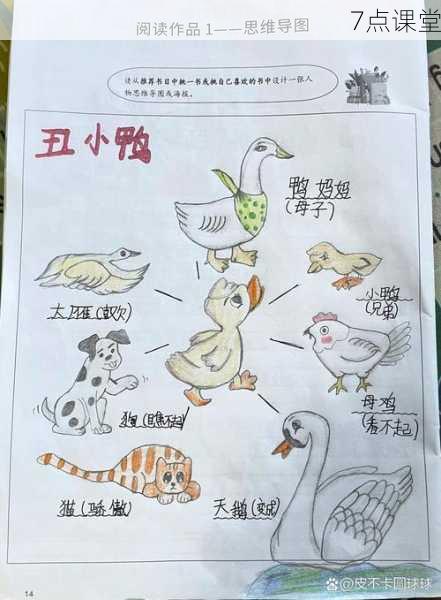 7点课堂
阅读作品 1——思维导图
读从推荐书目中挑一书或挑自己喜欢的书中设计一张人
物思维导图或海报。
丑小鸭
鸭妈妈
(母子)
小鸭
(兄弟)
母鸡
(看不起)
狗(瞧不起)
猫(骄傲)
天鹅
14
@皮不卡圆球球